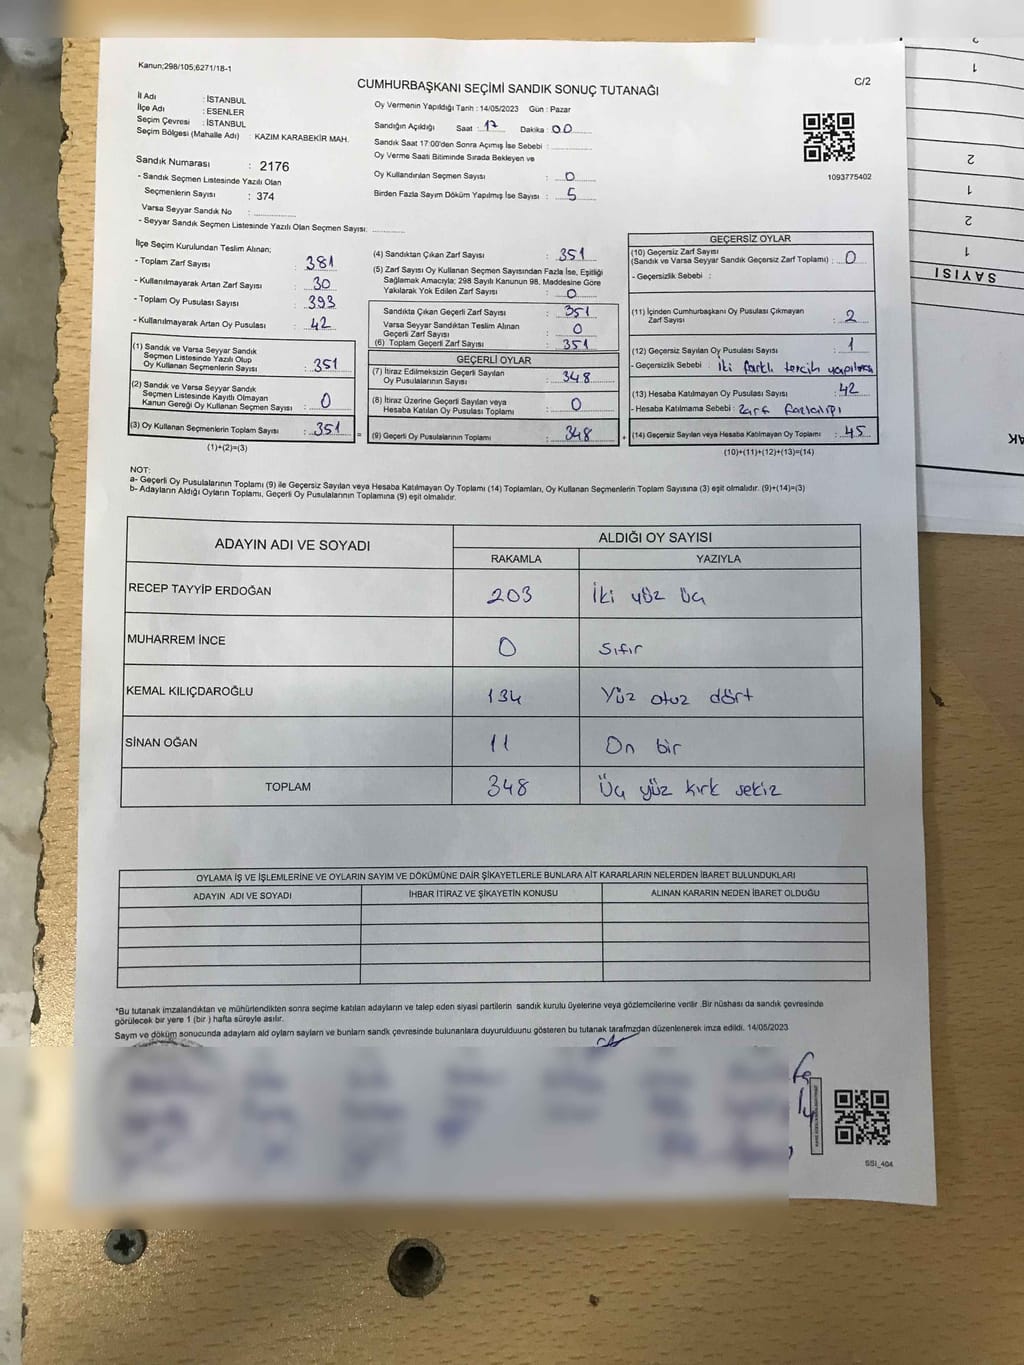 Kanun;298/105;6271/18-1
CUMHURBAŞKANI SEÇİMİ SANDIK SONUÇ TUTANAĞI
C/2
İl Adı : İSTANBUL
İlçe Adı : ESENLER
Seçim Çevresi : İSTANBUL
Seçim Bölgesi (Mahalle Adı) : KAZIM KARABEKİR MAH.
Sandık Numarası : 2176
- Sandık Seçmen Listesinde Yazılı Olan
Seçmenlerin Sayısı : 374
Varsa Seyyar Sandık No :
- Seyyar Sandık Seçmen Listesinde Yazılı Olan Seçmen Sayısı:
Oy Vermenin Yapıldığı Tarih : 14/05/2023 Gün : Pazar
Sandığın Açıldığı Saat : 17 Dakika : 00
Sandık Saat 17:00'den Sonra Açımış İse Sebebi :
Oy Verme Saati Bitiminde Sırada Bekleyen ve
Oy Kullandırılan Seçmen Sayısı : 0
Birden Fazla Sayım Döküm Yapılmış İse Sayısı : 5
1093775402
İlçe Seçim Kurulundan Teslim Alınan;
- Toplam Zarf Sayısı : 381
- Kullanılmayarak Artan Zarf Sayısı : 30
- Toplam Oy Pusulası Sayısı : 393
- Kullanılmayarak Artan Oy Pusulası : 42
(1) Sandık ve Varsa Seyyar Sandık
Seçmen Listesinde Yazılı Olup
Oy Kullanan Seçmenlerin Sayısı : 351
(2) Sandık ve Varsa Seyyar Sandık
Seçmen Listesinde Kayıtlı Olmayan
Kanun Gereği Oy Kullanan Seçmen Sayısı : 0
(3) Oy Kullanan Seçmenlerin Toplam Sayısı : 351
(1)+(2)=(3)
(4) Sandıktan Çıkan Zarf Sayısı : 351
(5) Zarf Sayısı Oy Kullanan Seçmen Sayısından Fazla İse, Eşitliği
Sağlamak Amacıyla; 298 Sayılı Kanunun 98. Maddesine Göre
Yakılarak Yok Edilen Zarf Sayısı : 0
Sandıkta Çıkan Geçerli Zarf Sayısı : 351
Varsa Seyyar Sandıktan Teslim Alınan
Geçerli Zarf Sayısı : 0
(6) Toplam Geçerli Zarf Sayısı : 351
GEÇERLİ OYLAR
(7) İtiraz Edilmeksizin Geçerli Sayılan
Oy Pusulalarının Sayısı : 348
(8) İtiraz Üzerine Geçerli Sayılan veya
Hesaba Katılan Oy Pusulası Toplamı : 0
(9) Geçerli Oy Pusulalarının Toplamı : 348
GEÇERSİZ OYLAR
(10) Geçersiz Zarf Sayısı
(Sandık ve Varsa Seyyar Sandık Geçersiz Zarf Toplamı) : 0
- Geçersizlik Sebebi :
(11) İçinden Cumhurbaşkanı Oy Pusulası Çıkmayan
Zarf Sayısı : 2
(12) Geçersiz Sayılan Oy Pusulası Sayısı : 1
- Geçersizlik Sebebi : İki farklı tercih yapılması
(13) Hesaba Katılmayan Oy Pusulası Sayısı : 42
- Hesaba Katılmama Sebebi : Zarf fazlalığı
(14) Geçersiz Sayılan veya Hesaba Katılmayan Oy Toplamı : 45
(10)+(11)+(12)+(13)=(14)
NOT:
a- Geçerli Oy Pusulalarının Toplamı (9) ile Geçersiz Sayılan veya Hesaba Katılmayan Oy Toplamı (14) Toplamları, Oy Kullanan Seçmenlerin Toplam Sayısına (3) eşit olmalıdır. (9)+(14)=(3)
b- Adayların Aldığı Oyların Toplamı, Geçerli Oy Pusulalarının Toplamına (9) eşit olmalıdır.
ADAYIN ADI VE SOYADI
ALDIĞI OY SAYISI
RAKAMLA YAZIYLA
RECEP TAYYİP ERDOĞAN 203 İki yüz üç
MUHARREM İNCE 0 Sıfır
KEMAL KILIÇDAROĞLU 134 Yüz otuz dört
SİNAN OĞAN 11 On bir
TOPLAM 348 Üç yüz kırk sekiz
OYLAMA İŞ VE İŞLEMLERİNE VE OYLARIN SAYIM VE DÖKÜMÜNE DAİR ŞİKAYETLERLE BUNLARA AİT KARARLARIN NELERDEN İBARET BULUNDUKLARI
ADAYIN ADI VE SOYADI İHBAR İTİRAZ VE ŞİKAYETİN KONUSU ALINAN KARARIN NEDEN İBARET OLDUĞU
*Bu tutanak imzalandıktan ve mühürlendikten sonra seçime katılan adayların ve talep eden siyasi partilerin sandık kurulu üyelerine veya gözlemcilerine verilir .Bir nüshası da sandık çevresinde
görülecek bir yere 1 (bir ) hafta süreyle asılır.
Sayım ve döküm sonucunda adayların ald oyların sayları ve bunların sandk çevresinde bulunanlara duyurulduunu gösteren bu tutanak tarafmzdan düzenlenerek imza edildi. 14/05/2023
SSI_404
SAYISI
1
2
1
2
1